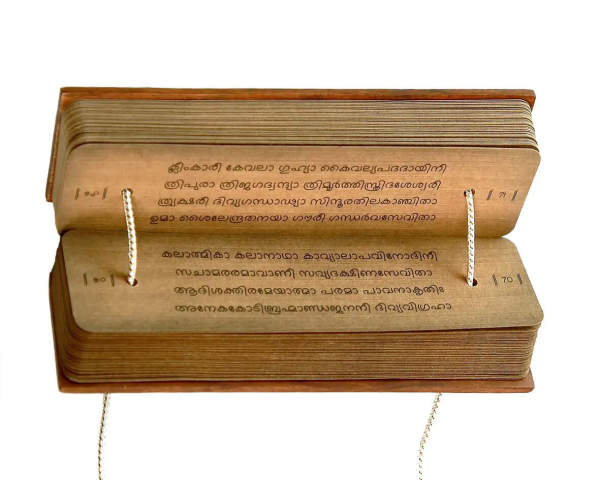 ക്ലീംകാരീ കേവലാ ഗുഹ്യാ കൈവല്യപദദായിനീ
ത്രിപുരാ ത്രിജഗദ്വന്ദ്യാ ത്രിമൂർത്തിസ്ത്രിദശേശ്വരീ
ത്ര്യക്ഷരീ ദിവ്യഗന്ധാഢ്യാ സിന്ദൂരതിലകാഞ്ചിതാ
71
ഉമാ ശൈലേന്ദ്രതനയാ ഗൗരീ ഗന്ധർവസേവിതാ
കലാത്മികാ കലാനാഥാ കാവ്യാലാപവിനോദിനീ
സചാമരരമാവാണീ സവ്യദക്ഷിണസേവിതാ
70
ആദിശക്തിരമേയാത്മാ പരമാ പാവനാകൃതിഃ
അനേകകോടിബ്രഹ്മാണ്ഡജനനീ ദിവ്യവിഗ്രഹാ